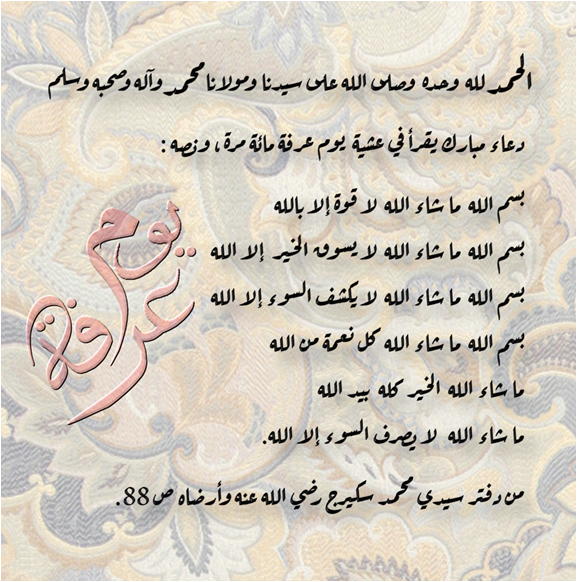 الحمد لله وحده وصلى الله على سيدنا ومولانا محمد وآله وصحبه وسلم
دعاء مبارك يقرأ في عشية يوم عرفة مائة مرة، ونصه :
بسم الله ما شاء الله لا قوة إلا بالله
بسم الله ما شاء الله لا يسوق الخير إلا الله
بسم الله ما شاء الله لا يكشف السوء إلا الله
بسم الله ما شاء الله كل نعمة من الله
ما شاء الله الخير كله بيد الله
ما شاء الله لا يصرف السوء إلا الله.
من دفتر سيدي محمد سكيرج رضي الله عنه وأرضاه ص 88.
يوم
عرفة